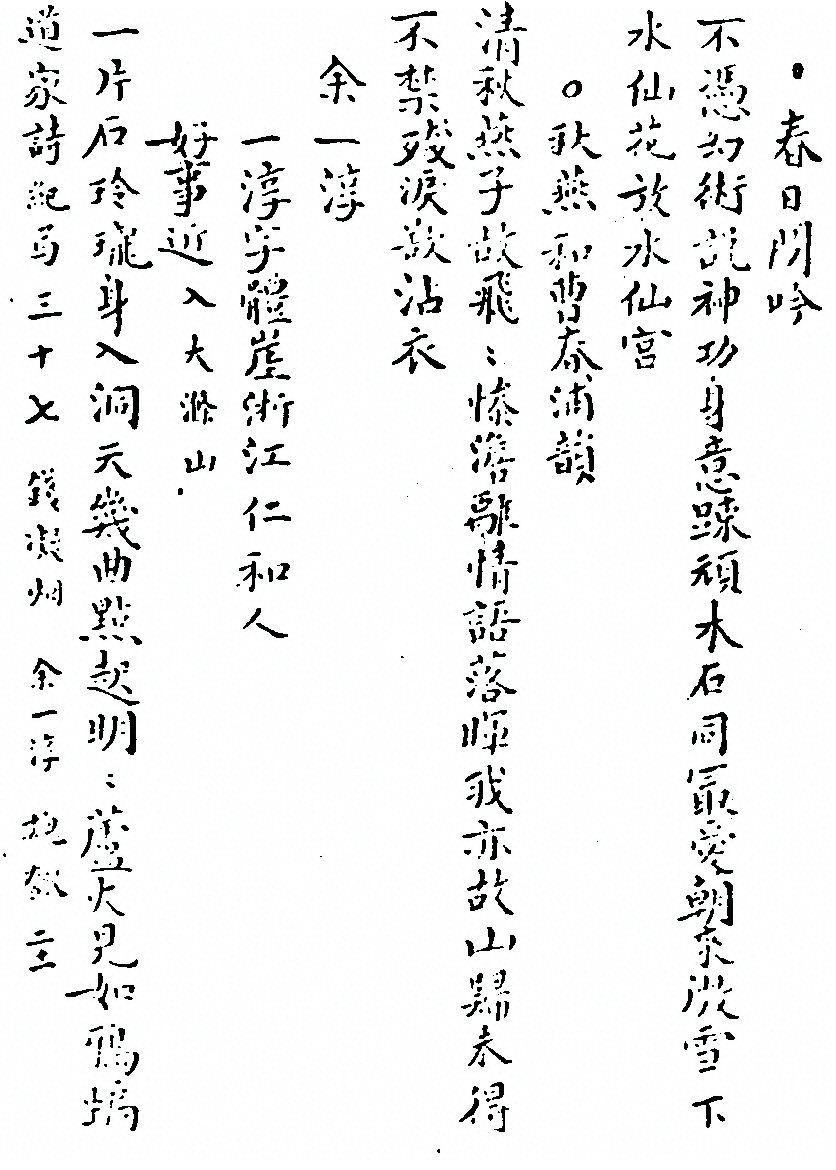 春日閒吟
不憑幻術說神功身意踈頑水石同冣愛朝來微雪下
水仙花放水仙宮
○秋燕和曹秦浦韻
清秋燕子故飛〻慘澹離情語落暉我亦故山歸未得
不禁殘淚欲沾衣
余一淳
一淳字體崖浙江仁和人
好事近 入大滌山
一片石玲瓏身入洞天幾曲點起明〻蘆火見如鴉蝙
道家詩紀 三十七 錢凝 余一淳